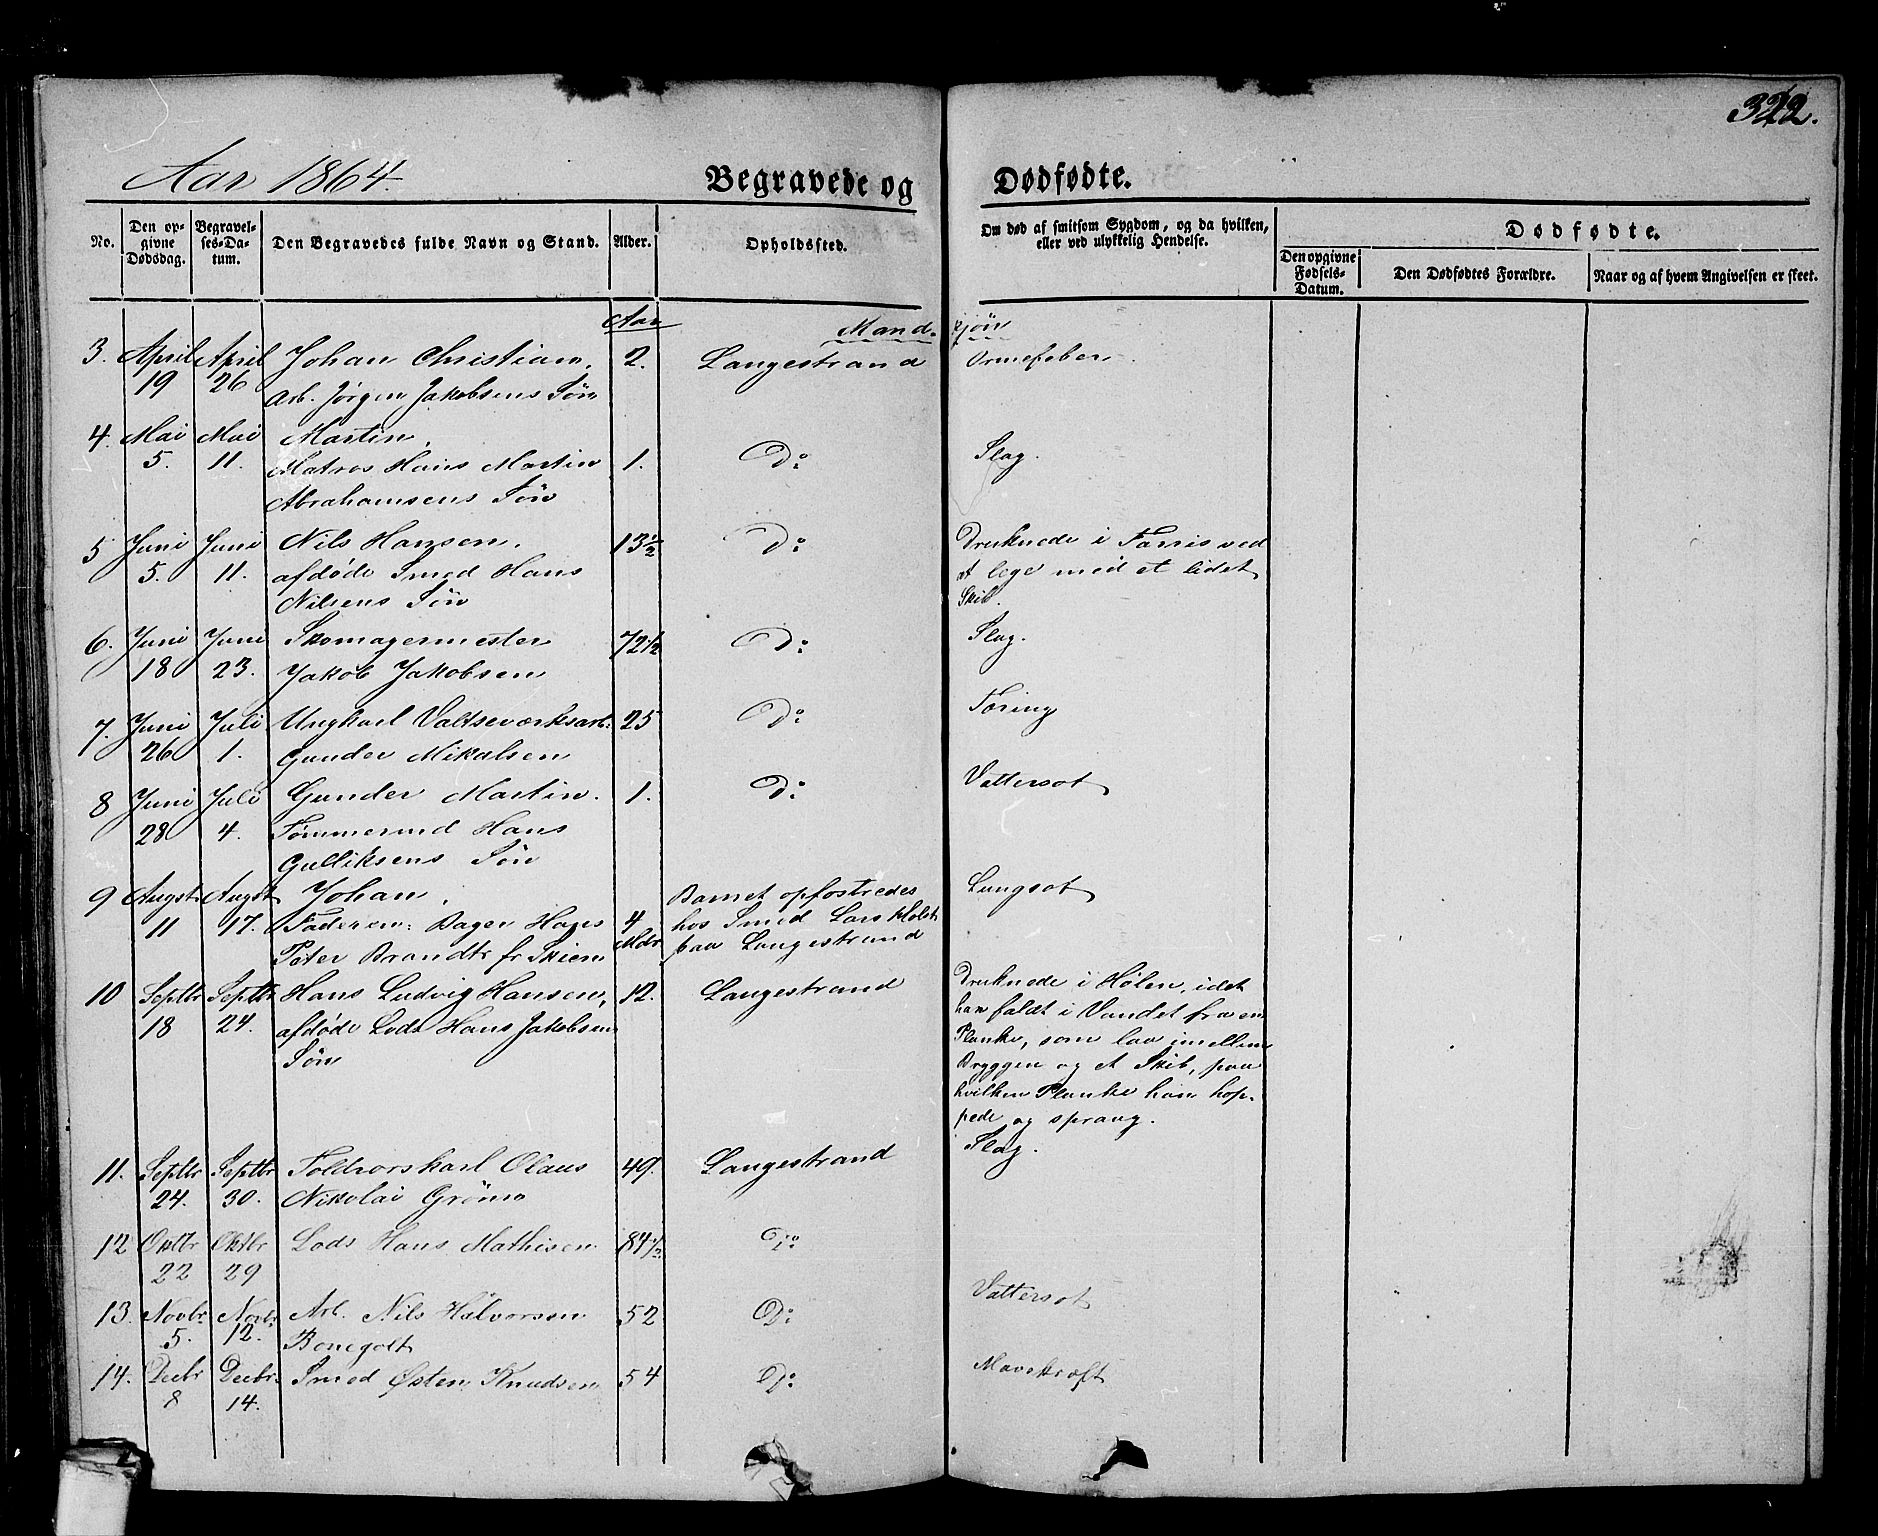 322.
Aar 1864.
Begravede og Dødfødte.
No.
Den opgivne Dødsdag.
Begravelses-Datum.
Den Begravedes fulde Navn og Stand.
Alder.
Opholdsted.
Om død af smitsom Sygdom, og da hvilken, eller ved ulykkelig Hendelse.
Dødfødte.
Den opgivne Fødsels-Datum.
Den Dødfødtes Forældre.
Naar og af hvem Angivelsen er skeet.
Aar
Mand-kjøn
3. April April Johan Christian, 2. Langestrand Ormefeber
19 26 Arb. Jørgen Jakobsens Søn
4. Mai Mai Martin, Slag.
5. 11. Matros Hans Martin 1. Do
Abrahamsens Søn
5 Juni Juni Nils Hansen, 13½ Do Druknede i Farris ved
5. 11. afdøde Smed Hans at lege med et lidet
Nilsens Søn Skib.
6. Juni Juni Skomagermester 72½ Do Slag.
18 23. Jakob Jakobsen
7. Juni Juli Ungkarl Valtseværksarb: 25 Do Tæring
26 1. Gunder Mikalsen
8 Juni Juli Gunder Martin. 1. Do Vattersot
28 4. Tømmermd Hans
Gulliksens Søn
9 Augst Augst Johan, Barnet opfostredes Lungsot
11 17. Faderen: Bager Hans 4 hos Smed Lars Holst
Peter Brandt fr Skien Mdr paa Langestrand
10 Septbr Septbr Hans Ludvig Hansen, 12. Langestrand Druknede i Hølen, idet
18 24. afdøde Lods Hans Jakobsens han faldt i Vandet fra en
Søn Planke, som laa imellem
Bryggen og et Skib, paa
hvilken Planke han hop-
pede og sprang.
11. Septbr Septbr Toldrorskarl Olaus 49. Langestrand Slag.
24. 30. Nikolai Grøm
12 Oktbr Oktbr Lods Hans Mathisen 84½ Do
22 29
13. Novbr Novbr Arb. Nils Halvorsen 52 Do Vattersot
5. 12. Bonegolt
14. Decbr Decbr Smed Østen Knudsen 54 Do Mavekræft
8 14.